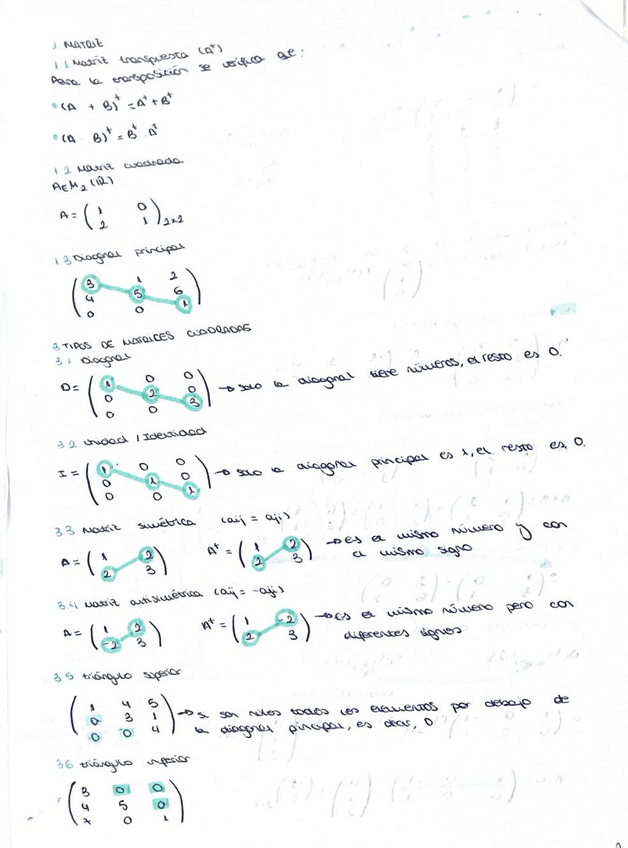 1. MATRIZ
1.1 Matriz transpuesta (Aᵗ)
Para la transposición se verifica que:
• (A + B)ᵗ = Aᵗ + Bᵗ
• (A · B)ᵗ = Bᵗ · Aᵗ
1.2 Matriz cuadrada
A∈M₂(ℝ)
A = ( 1 0
2 1 )₂ₓ₂
1.3 Diagonal principal
( 3 1 2
4 5 6
0 0 1 )
3 TIPOS DE MATRICES CUADRADAS
3.1 Diagonal
D = ( 1 0 0
0 2 0
0 0 3 ) → solo la diagonal tiene números, el resto es 0.
3.2 unidad / Identidad
I = ( 1 0 0
0 1 0
0 0 1 ) → solo la diagonal principal es 1, el resto es 0.
3.3 Matriz simétrica (aij = aji)
A = ( 1 2
2 3 ) Aᵗ = ( 1 2
2 3 ) → es el mismo número y con
el mismo signo
3.4 Matriz antisimétrica (aij = -aji)
A = ( 1 2
-2 3 ) Aᵗ = ( 1 -2
2 3 ) → es el mismo número pero con
diferentes signos
3.5 triángulo superior
( 1 4 5
0 3 1
0 0 4 ) → si son nulos todos los elementos por debajo de
la diagonal principal, es decir, 0
3.6 triángulo inferior
( 3 0 0
4 5 0
7 0 1 )